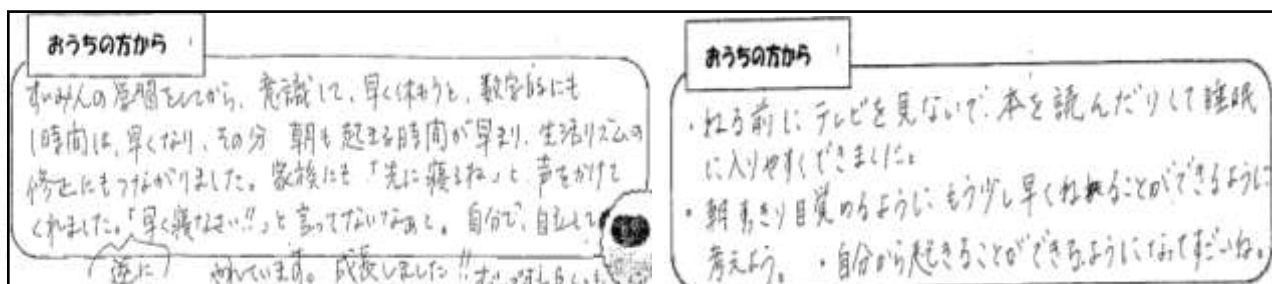 おうちの方から
すいみんの学習をしてから、意識して、早く休もうと、数字的にも
1時間は、早くなり、その分 朝も起きる時間が早まり、生活リズムの
修正にもつながりました。家族にも「先に寝るね」と声をかけて
くれました。「早く寝なさい!!」と言ってないなぁと。自分で、自立して
逆に されています。成長しました!!
おうちの方から
・ねる前にテレビを見ないで、本を読んだりして睡眠
に入りやすくできました。
・朝すっきり目覚めるように、もう少し早くねれることができるように
考えよう。 ・自分から起きることができるようになってすごいね。